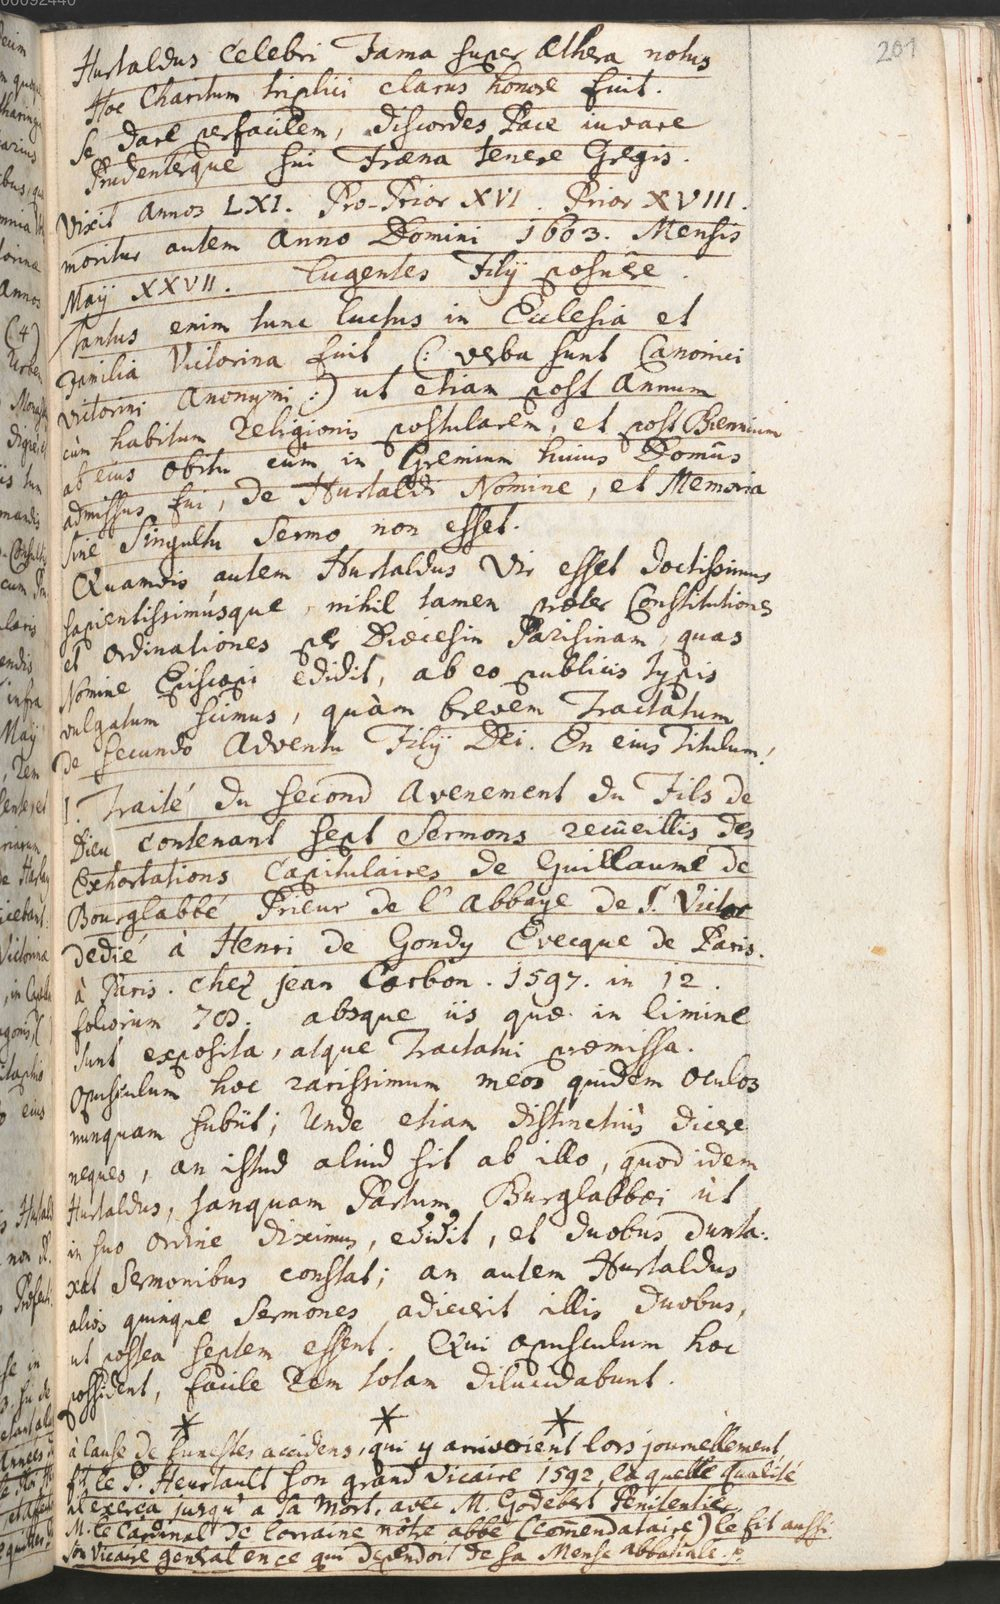 00092440
201
Hurtaldus celebri Fama super Æthera notus
Hoc Charitum triplici clarus honore fuit.
Se dare perfacilem, discordes Pace iuvare
Prudenterque sui Fræna tenere Gregis.
Vixit annos LXI. Pro-Prior XVI. Prior XVIII.
moritur autem Anno Domini 1603. Mensis
Maÿ XXVII. Lugentes Filÿ posuêre.
Tantus enim tunc luctus in Ecclesia et
Familia Victorina fuit (: verba sunt Canonici
Victorini Anonymi :) ut etiam post annum
cùm habitum Religionis postularem, et post Biennium
ab eius obitu cùm in Gremium huius Domûs
admissus fui, de Hurtaldi Nomine, et Memoria
sine Singultu Sermo non esset.
Quamvis autem Hurtaldus Vir esset doctissimus
sapientissimúsque, nihil tamen præter Constitutiones
et Ordinationes per Diœcesin Parisinam, quas
Nomine Episcopi edidit, ab eo publicis typis
vulgatum scimus, quàm brevem Tractatum
de secundo Adventu Filÿ Dei. En eius Titulum!
I. Traité du second avenement du Fils de
Dieu contenant sept Sermons recüeillis des
Exhortations Capitulaires de Guillaume de
Bourglabbé Prieur de l'Abbaye de S. Victor
dedié à Henri de Gondy Evecque de Paris.
à Paris. chez Jean Corbon. 1597. in 12.
foliorum 703. absque iis quæ in limine
sunt exposita, atque Tractatui præmissa.
Opusculum hoc rarissimum meos quidem oculos
nunquam subiit; Unde etiam distinctiùs dicere
nequeo, an istud aliud sit ab illo, quod idem
Hurtaldus, tanquam Partum Burglabbæi ùt
in suo ordine diximus, edidit, et duobus dunta:
xat Sermonibus constat; an autem Hurtaldus
alios quinque Sermones adiecerit illis duobus,
ut postea septem essent. Qui opusculum hoc
possident, facile Rem totam dilucidabunt.
* * *
à cause de funestes accidens, qui y arrivoient lors journellement,
fit le P. Heurtault son grand vicaire 1592, laquelle qualité
il exerça jusqu'a sa mort. avec M. Godebert Penitentier.
M. le Cardinal de Lorraine nôtre abbé (com̃endataire) le fit aussi
son Vicaire general en ce qui dependoit de sa Mense abbatiale.